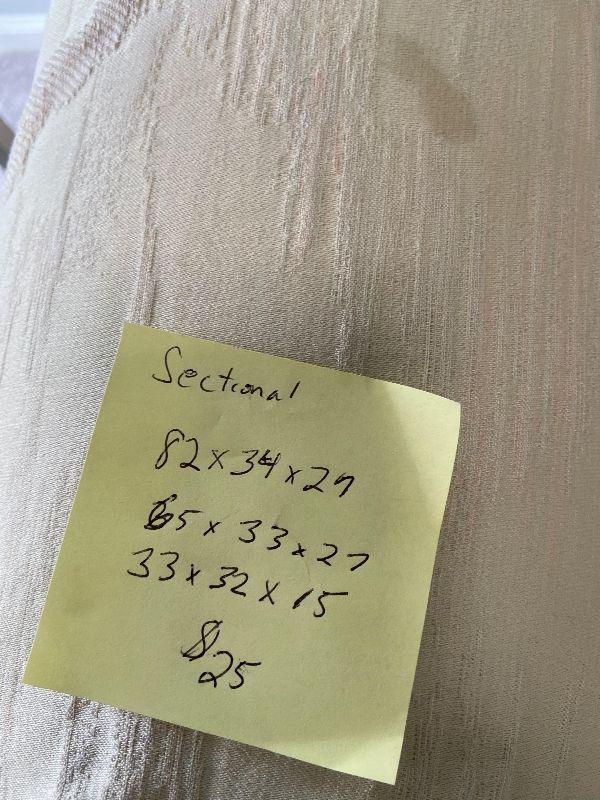 Sectional
82 x 34 x 27
65 x 33 x 27
33 x 32 x 15
$25